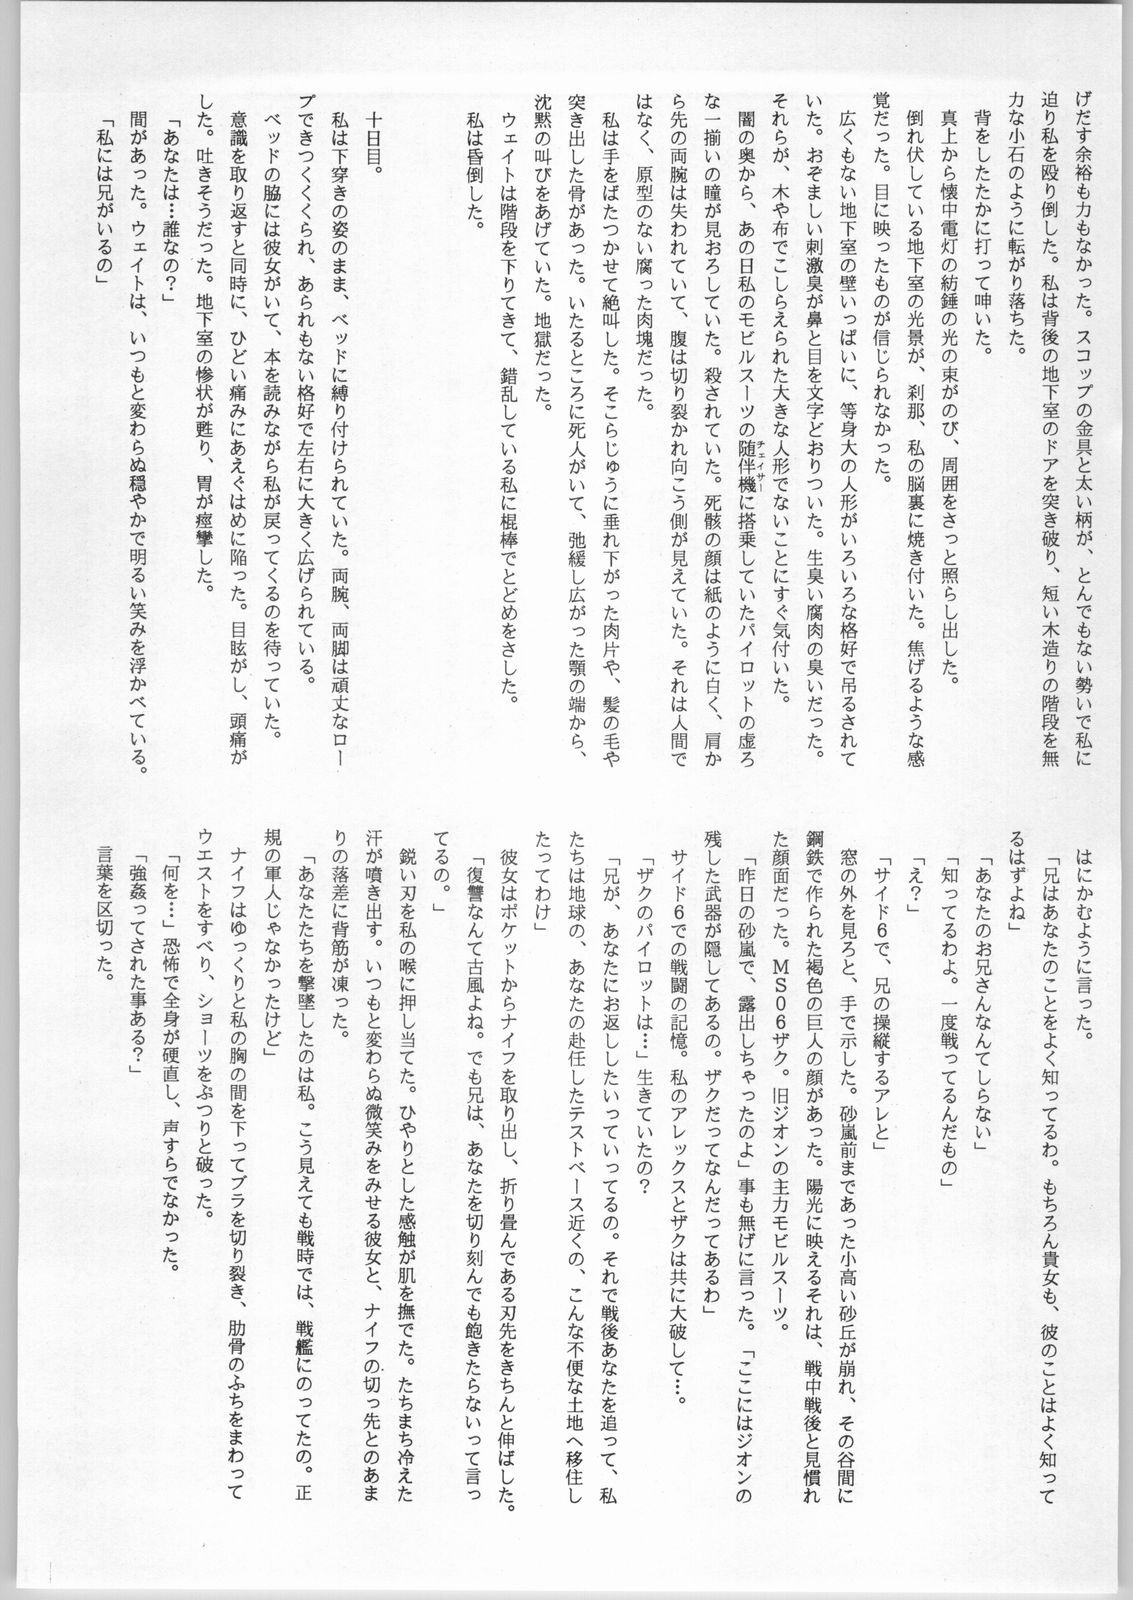 げだす余裕も力もなかった。スコップの金具と太い柄が、とんでもない勢いで私に
迫り私を殴り倒した。私は背後の地下室のドアを突き破り、短い木造りの階段を無
力な小石のように転がり落ちた。
背をしたたかに打って呻いた。
真上から懐中電灯の紡錘の光の束がのび、周囲をさっと照らし出した。
倒れ伏している地下室の光景が、刹那、私の脳裏に焼き付いた。焦げるような感
覚だった。目に映ったものが信じられなかった。
広くもない地下室の壁いっぱいに、等身大の人形がいろいろな格好で吊るされて
いた。おぞましい刺激臭が鼻と目を文字どおりついた。生臭い腐肉の臭いだった。
それらが、木や布でこしらえられた大きな人形でないことにすぐ気付いた。
闇の奥から、あの日私のモビルスーツの随伴機チェイサーに搭乗していたパイロットの虚ろ
な一揃いの瞳が見おろしていた。殺されていた。死骸の顔は紙のように白く、肩か
ら先の両腕は失われていて、腹は切り裂かれ向こう側が見えていた。それは人間で
はなく、原型のない腐った肉塊だった。
私は手をばたつかせて絶叫した。そこらじゅうに垂れ下がった肉片や、髪の毛や
突き出した骨があった。いたるところに死人がいて、弛緩し広がった顎の端から、
沈黙の叫びをあげていた。地獄だった。
ウェイトは階段を下りてきて、錯乱している私に棍棒でとどめをさした。
私は昏倒した。
十日目。
私は下穿きの姿のまま、ベッドに縛り付けられていた。両腕、両脚は頑丈なロー
プできつくくくられ、あられもない格好で左右に大きく広げられている。
ベッドの脇には彼女がいて、本を読みながら私が戻ってくるのを待っていた。
意識を取り返すと同時に、ひどい痛みにあえぐはめに陥った。目眩がし、頭痛が
した。吐きそうだった。地下室の惨状が甦り、胃が痙攣した。
「あなたは…誰なの？」
間があった。ウェイトは、いつもと変わらぬ穏やかで明るい笑みを浮かべている。
「私には兄がいるの」
はにかむように言った。
「兄はあなたのことをよく知ってるわ。もちろん貴女も、彼のことはよく知って
るはずよね」
「あなたのお兄さんなんてしらない」
「知ってるわよ。一度戦ってるんだもの」
「え？」
「サイド６で、兄の操縦するアレと」
窓の外を見ろと、手で示した。砂嵐前まであった小高い砂丘が崩れ、その谷間に
鋼鉄で作られた褐色の巨人の顔があった。陽光に映えるそれは、戦中戦後と見慣れ
た顔面だった。ＭＳ０６ザク。旧ジオンの主力モビルスーツ。
「昨日の砂嵐で、露出しちゃったのよ」事も無げに言った。「ここにはジオンの
残した武器が隠してあるの。ザクだってなんだってあるわ」
サイド６での戦闘の記憶。私のアレックスとザクは共に大破して…。
「ザクのパイロットは…」生きていたの？
「兄が、あなたにお返ししたいっていってるの。それで戦後あなたを追って、私
たちは地球の、あなたの赴任したテストベース近くの、こんな不便な土地へ移住し
たってわけ」
彼女はポケットからナイフを取り出し、折り畳んである刃先をきちんと伸ばした。
「復讐なんて古風よね。でも兄は、あなたを切り刻んでも飽きたらないって言っ
てるの。」
鋭い刃を私の喉に押し当てた。ひやりとした感触が肌を撫でた。たちまち冷えた
汗が噴き出す。いつもと変わらぬ微笑みをみせる彼女と、ナイフの切っ先とのあま
りの落差に背筋が凍った。
「あなたたちを撃墜したのは私。こう見えても戦時では、戦艦にのってたの。正
規の軍人じゃなかったけど」
ナイフはゆっくりと私の胸の間を下ってブラを切り裂き、肋骨のふちをまわって
ウエストをすべり、ショーツをぷつりと破った。
「何を…」恐怖で全身が硬直し、声すらでなかった。
「強姦ってされた事ある？」
言葉を区切った。